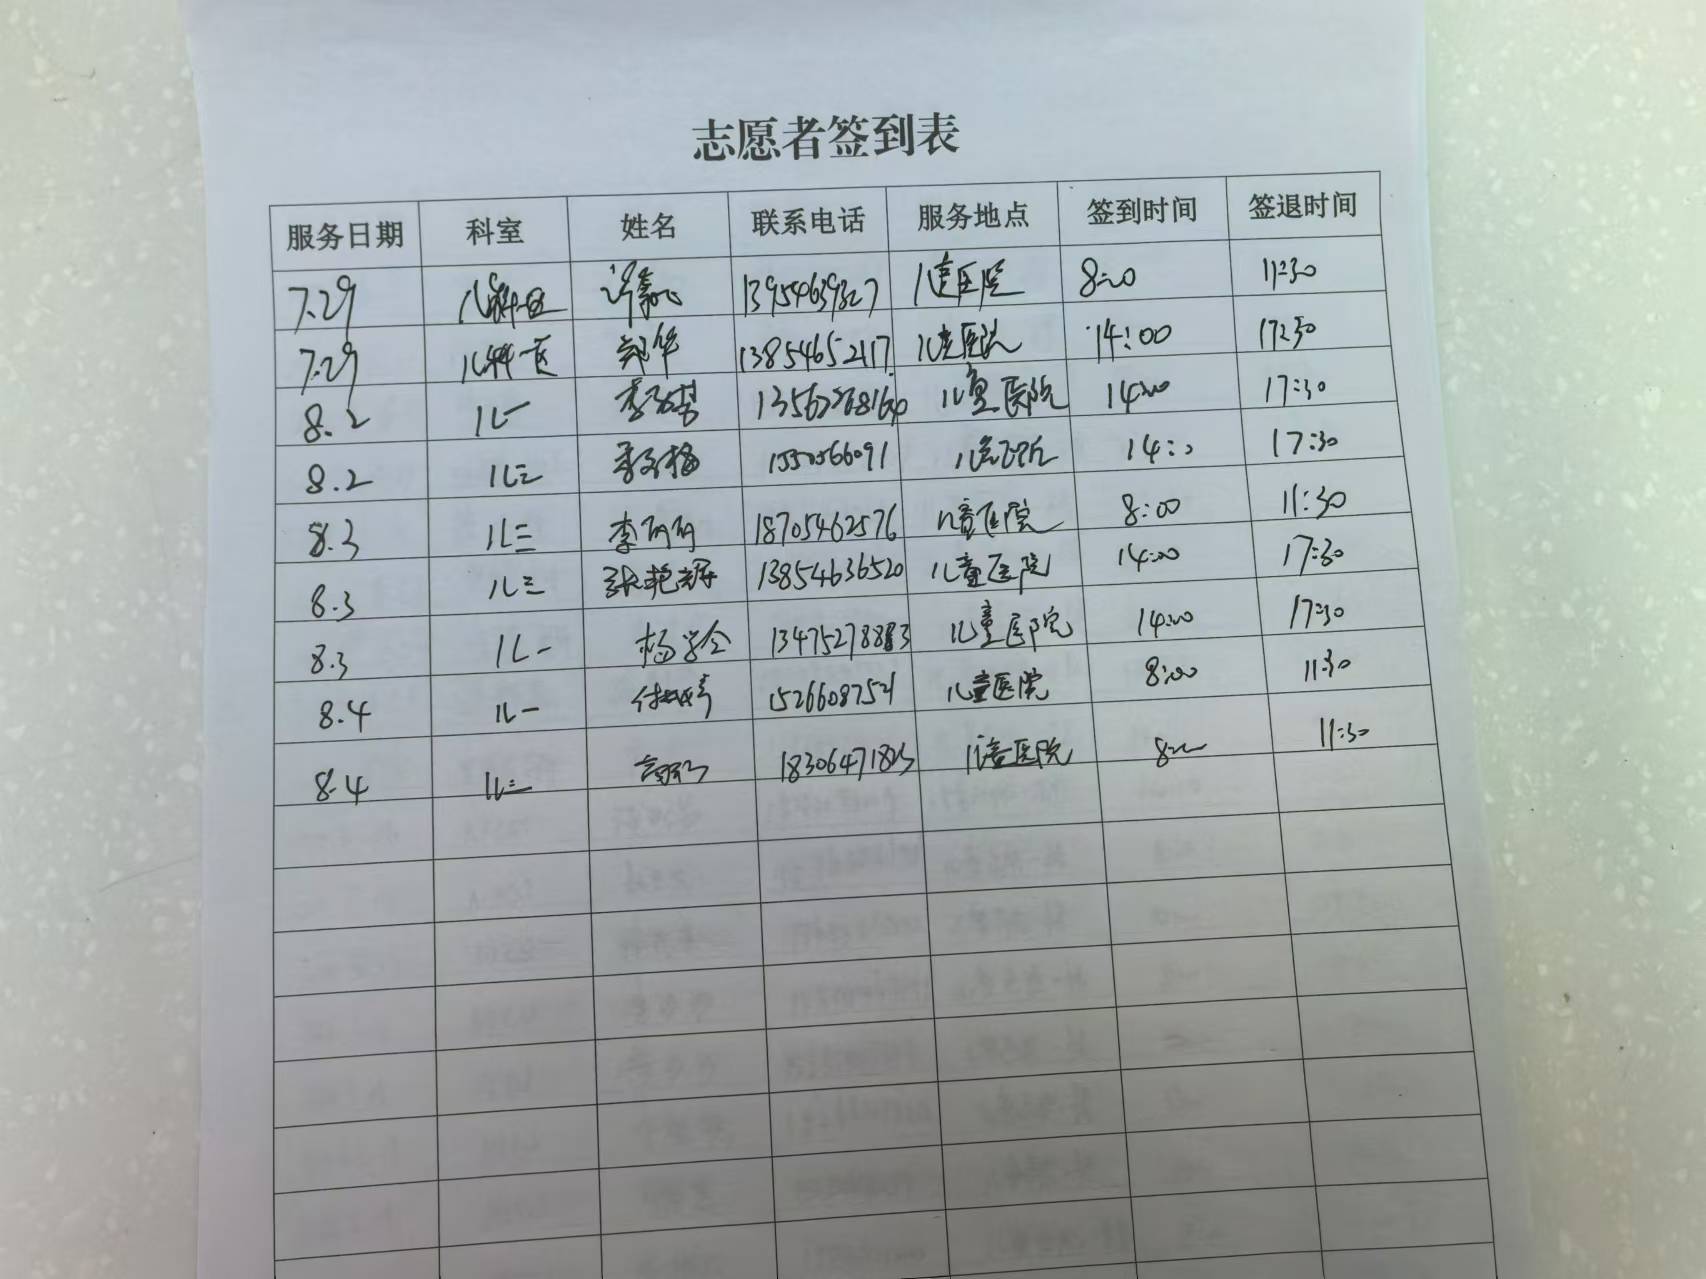 志愿者签到表
服务日期 科室 姓名 联系电话 服务地点 签到时间 签退时间
7.29 儿科一区 13954639827 儿童医院 8:00 11:30
7.29 儿科一区 郭华 13854652117 儿童医院 14:00 17:30
8.2 儿一 14:00 17:30
8.2 儿三 儿童医院 14:00 17:30
8.3 儿三 李丽丽 18705462576 儿童医院 8:00 11:30
8.3 儿三 张艳辉 13854636520 儿童医院 14:00 17:30
8.3 儿一 杨学会 13475278883 儿童医院 14:00 17:30
8.4 儿一 15266087521 儿童医院 8:00 11:30
8.4 儿三 儿童医院 8:00 11:30